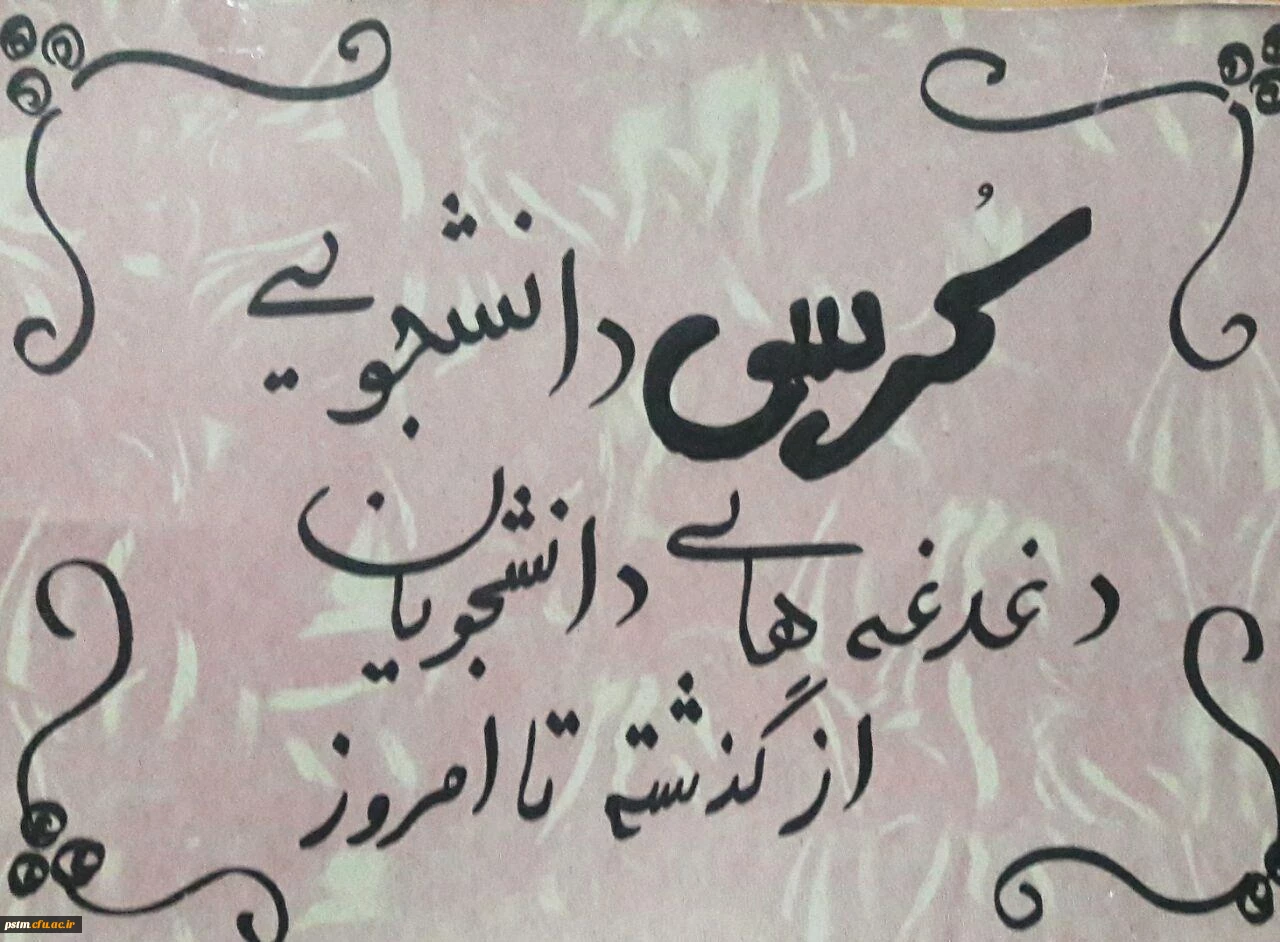 کُرسی دانشجویی
دغدغه های دانشجویان
از گذشته تا امروز
pstm.cfu.ac.ir